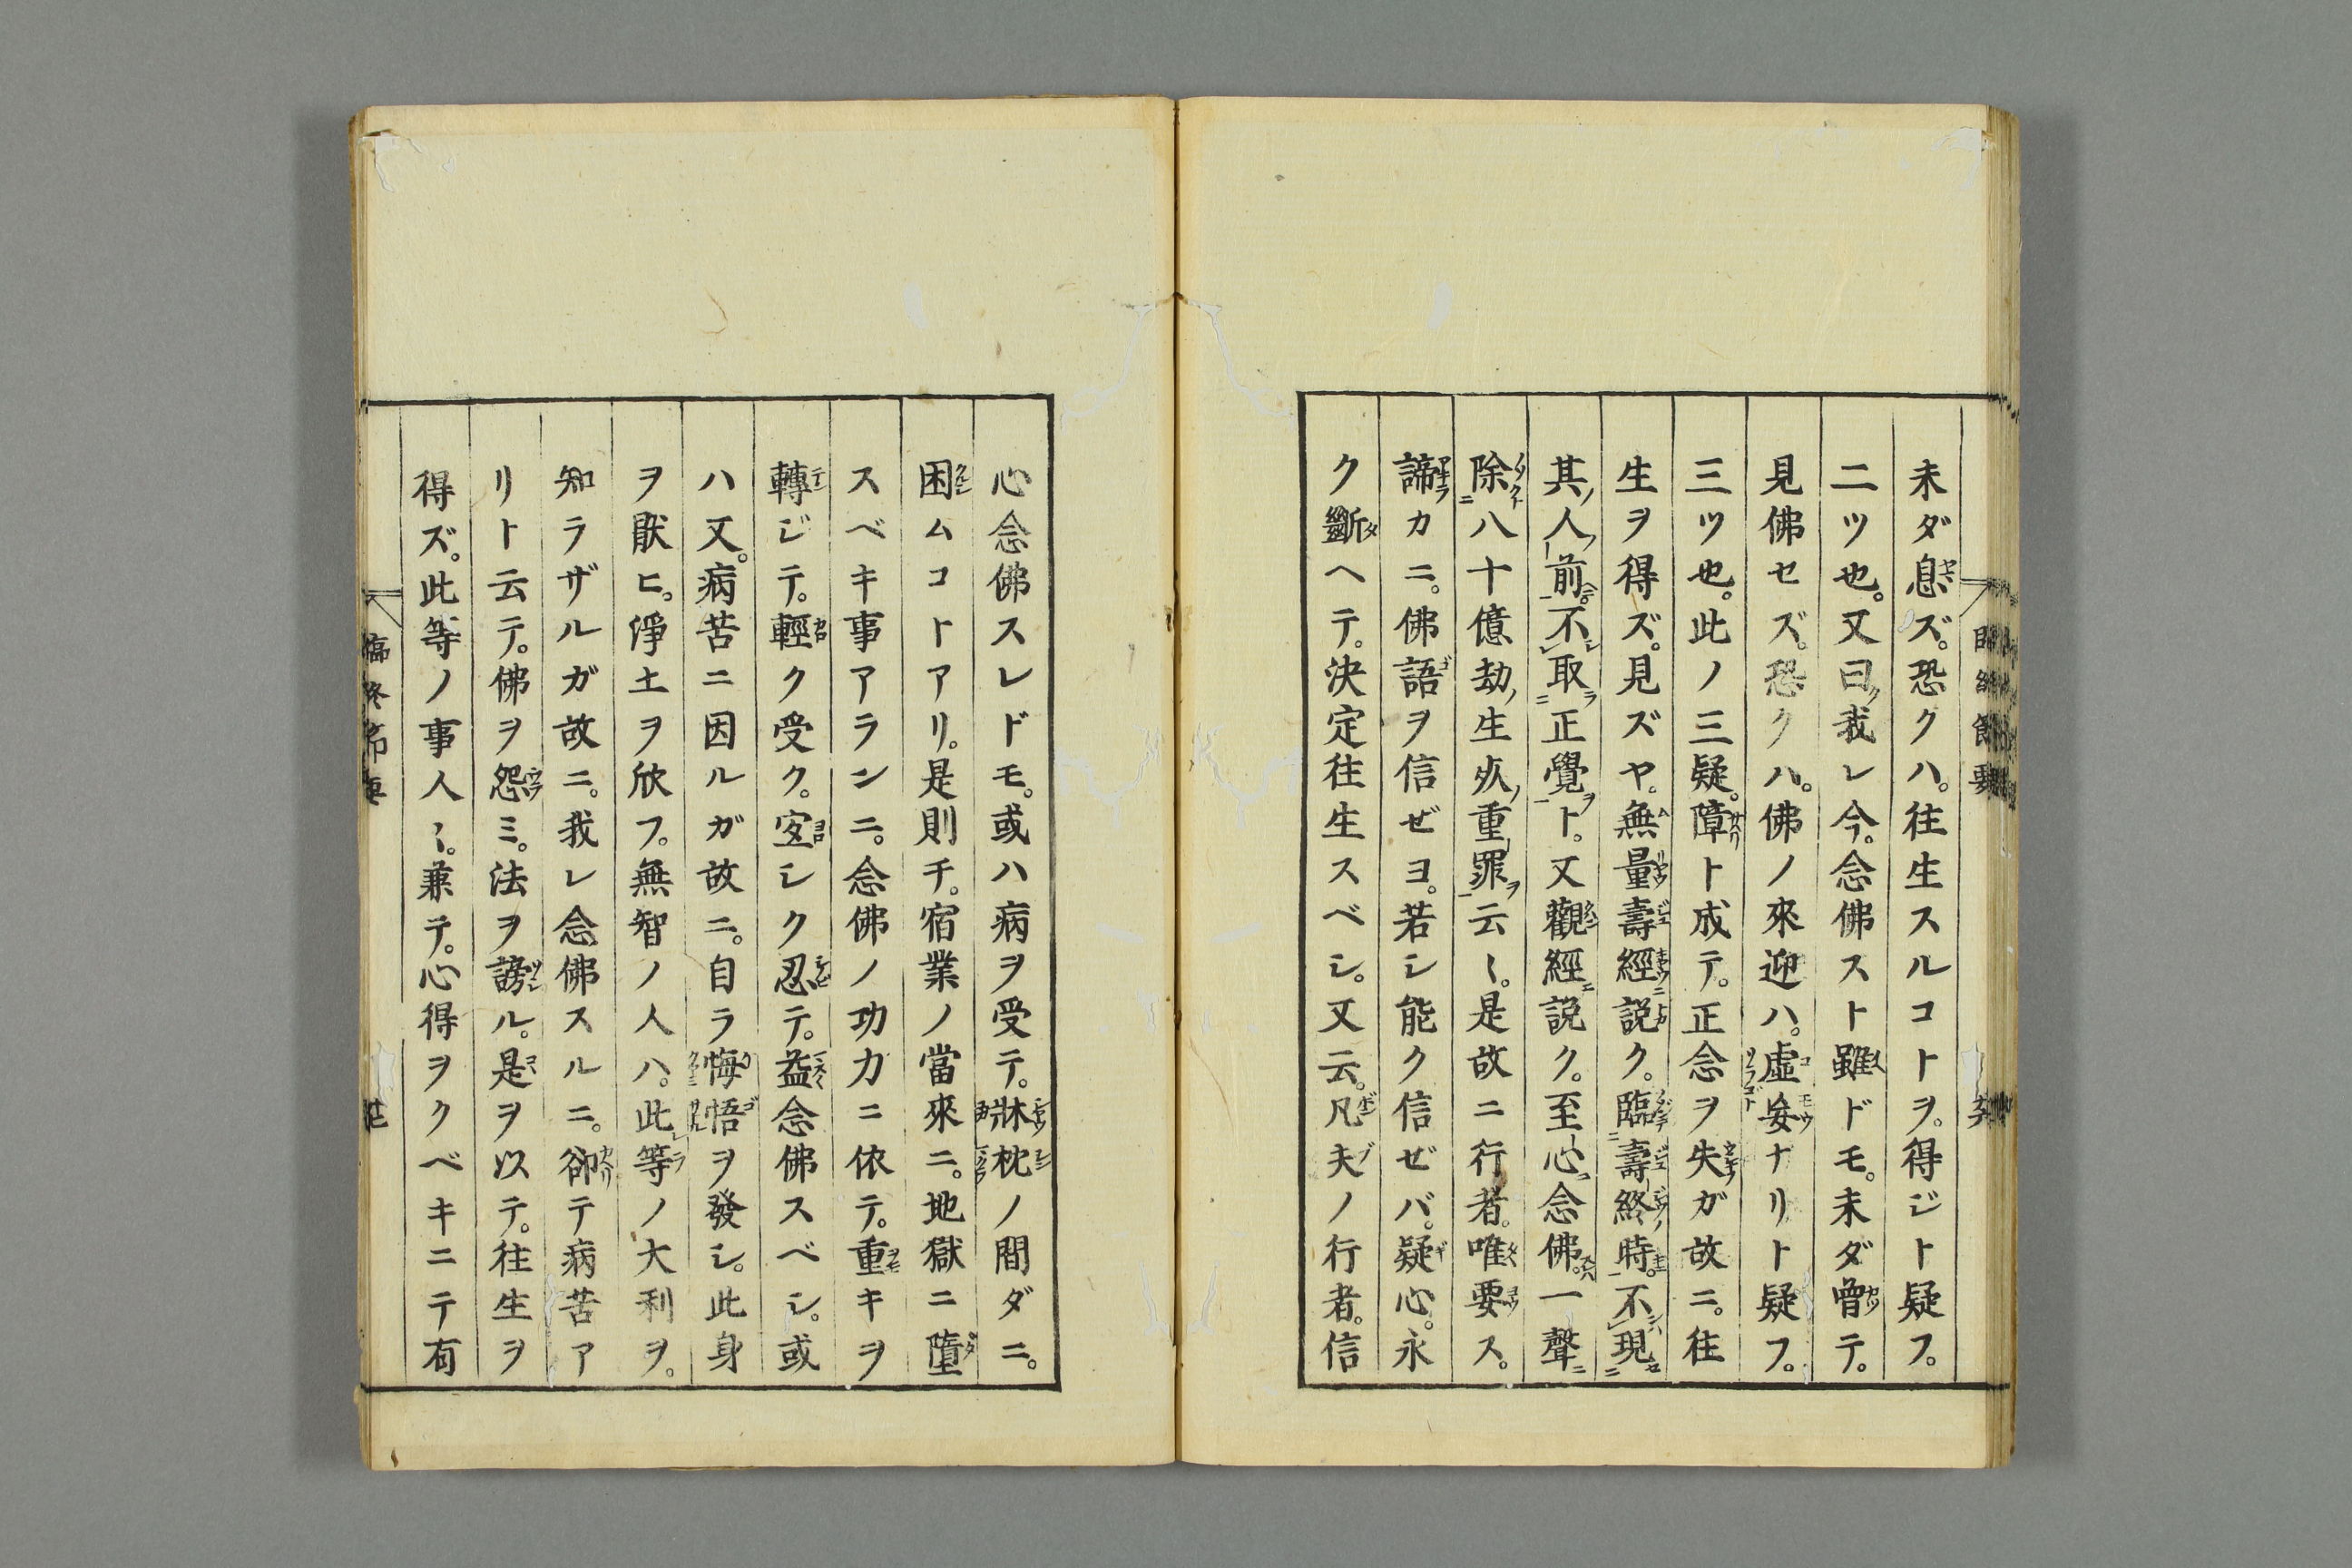 未ダ息ズ。恐クハ。往生スルコトヲ。得ジト疑フ。
二ツ也。又曰ク我レ今。念佛スト雖ドモ。未ダ曾テ。
見佛セズ。恐クハ。佛ノ來迎ハ。虛妄ナリト疑フ。
三ツ也。此ノ三疑。障ト成テ。正念ヲ失ガ故ニ。往
生ヲ得ズ。見ズヤ。無量壽經ニ説ク。臨壽終時。不現
其人前。不取正覺ト。又觀經ニ説ク。至心念佛。一聲
除八十億劫生死重罪云〻。是故ニ行者。唯要ス。
諦カニ。佛語ヲ信ゼヨ。若シ能ク信ゼバ。疑心。永
ク斷ヘテ。決定往生スベシ。又云。凡夫ノ行者。信
心念佛スレドモ。或ハ病ヲ受テ。牀枕ノ間ダニ。
困ムコトアリ。是則チ。宿業ノ當來ニ。地獄ニ墮
スベキ事アランニ。念佛ノ功力ニ依テ。重キヲ
轉ジテ。輕ク受ク。宐シク忍テ。益念佛スベシ。或
ハ又。病苦ニ因ルガ故ニ。自ラ悔悟ヲ發シ。此身
ヲ猒ヒ。淨土ヲ欣フ。無智ノ人ハ。此等ノ大利ヲ。
知ラザルガ故ニ。我レ念佛スルニ。卻テ病苦ア
リト云テ。佛ヲ怨ミ。法ヲ謗ル。是ヲ以テ。往生ヲ
得ズ。此等ノ事人〻。兼テ。心得ヲクベキニテ有
臨終節要